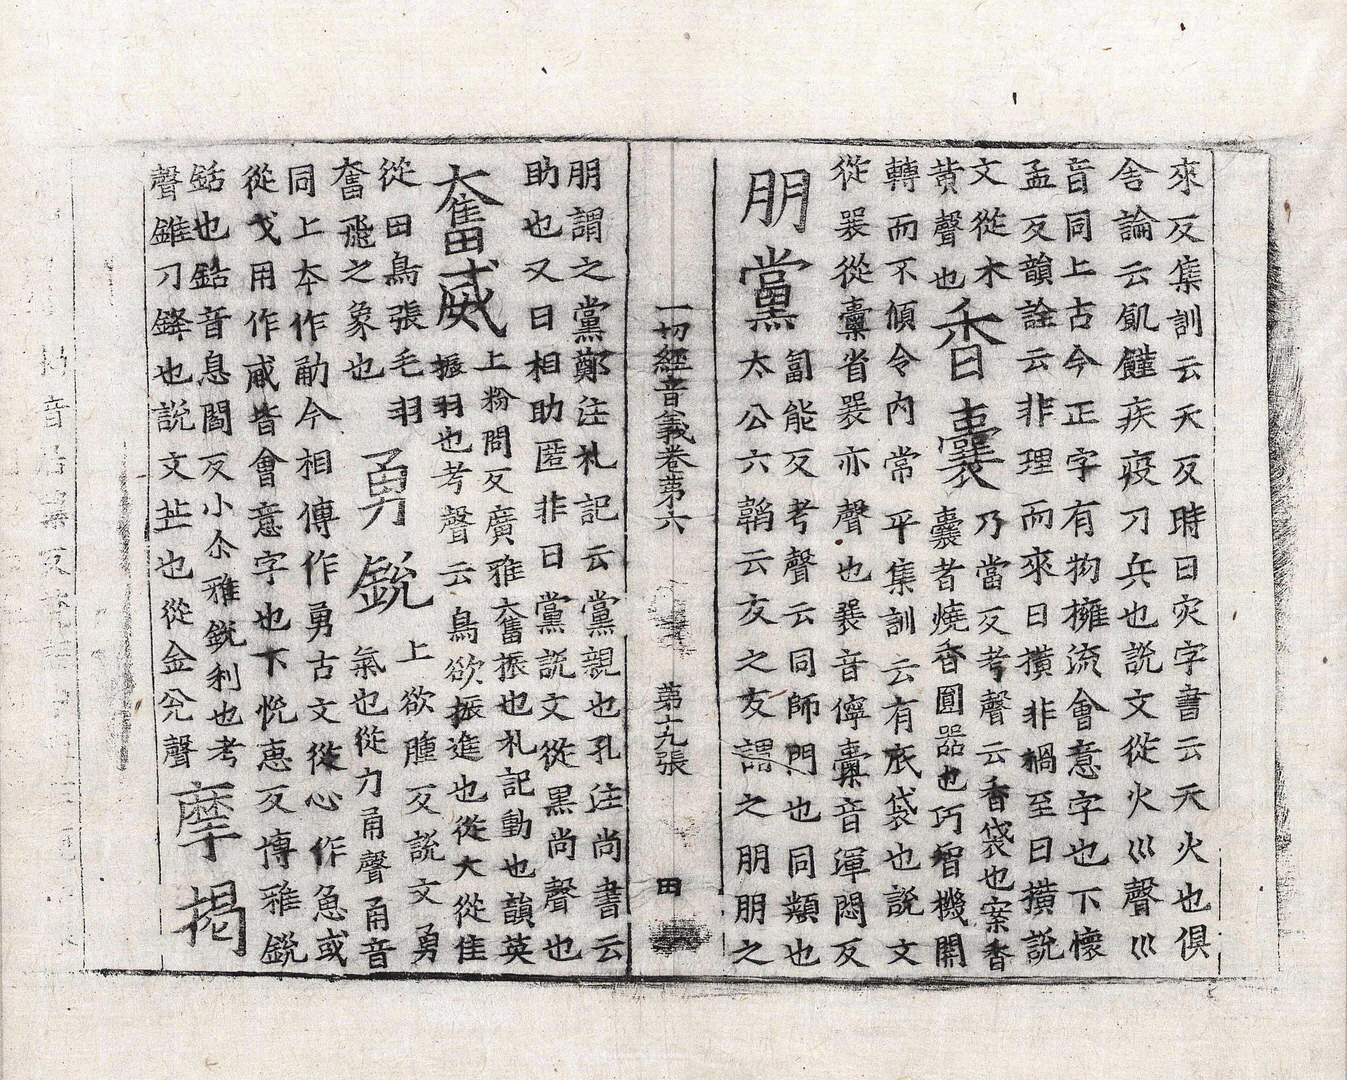 來反集訓云天反時曰灾字書云天火也俱
舍論云飢饉疾疫刀兵也説文從火巛聲巛
音同上古今正字有物擁流會意字也下懷
孟反韻詮云非理而來曰撗非禍至曰撗説
文從木
黄聲也香囊乃當反考聲云香袋也案香
囊者燒香圓器也巧智機關
轉而不傾令内常平集訓云有底袋也説文
從㯻從橐省㯻亦聲也㯻音儜橐音渾悶反
朋黨匐能反考聲云同師門也同類也
太公六韜云友之友謂之朋朋之
一切經音義卷苐六 苐十九張 田
朋謂之黨鄭注礼記云黨親也孔注尚書云
助也又曰相助匿非曰黨説文從黒尚聲也
奮威上粉問反廣雅奮振也札記動也韻英
振羽也考聲云鳥欲振進也從大從隹
從田鳥張毛羽
奮飛之象也勇銳上欲腫反説文勇
氣也從力甬聲甬音
同上本作勈今相傳作勇古文從心作恿或
從戈用作㦷皆會意字也下悦惠反博雅銳
銛也銛音息閻反小尒雅銳利也考
聲錐刀鋒也説文芒也從金兊聲摩揭